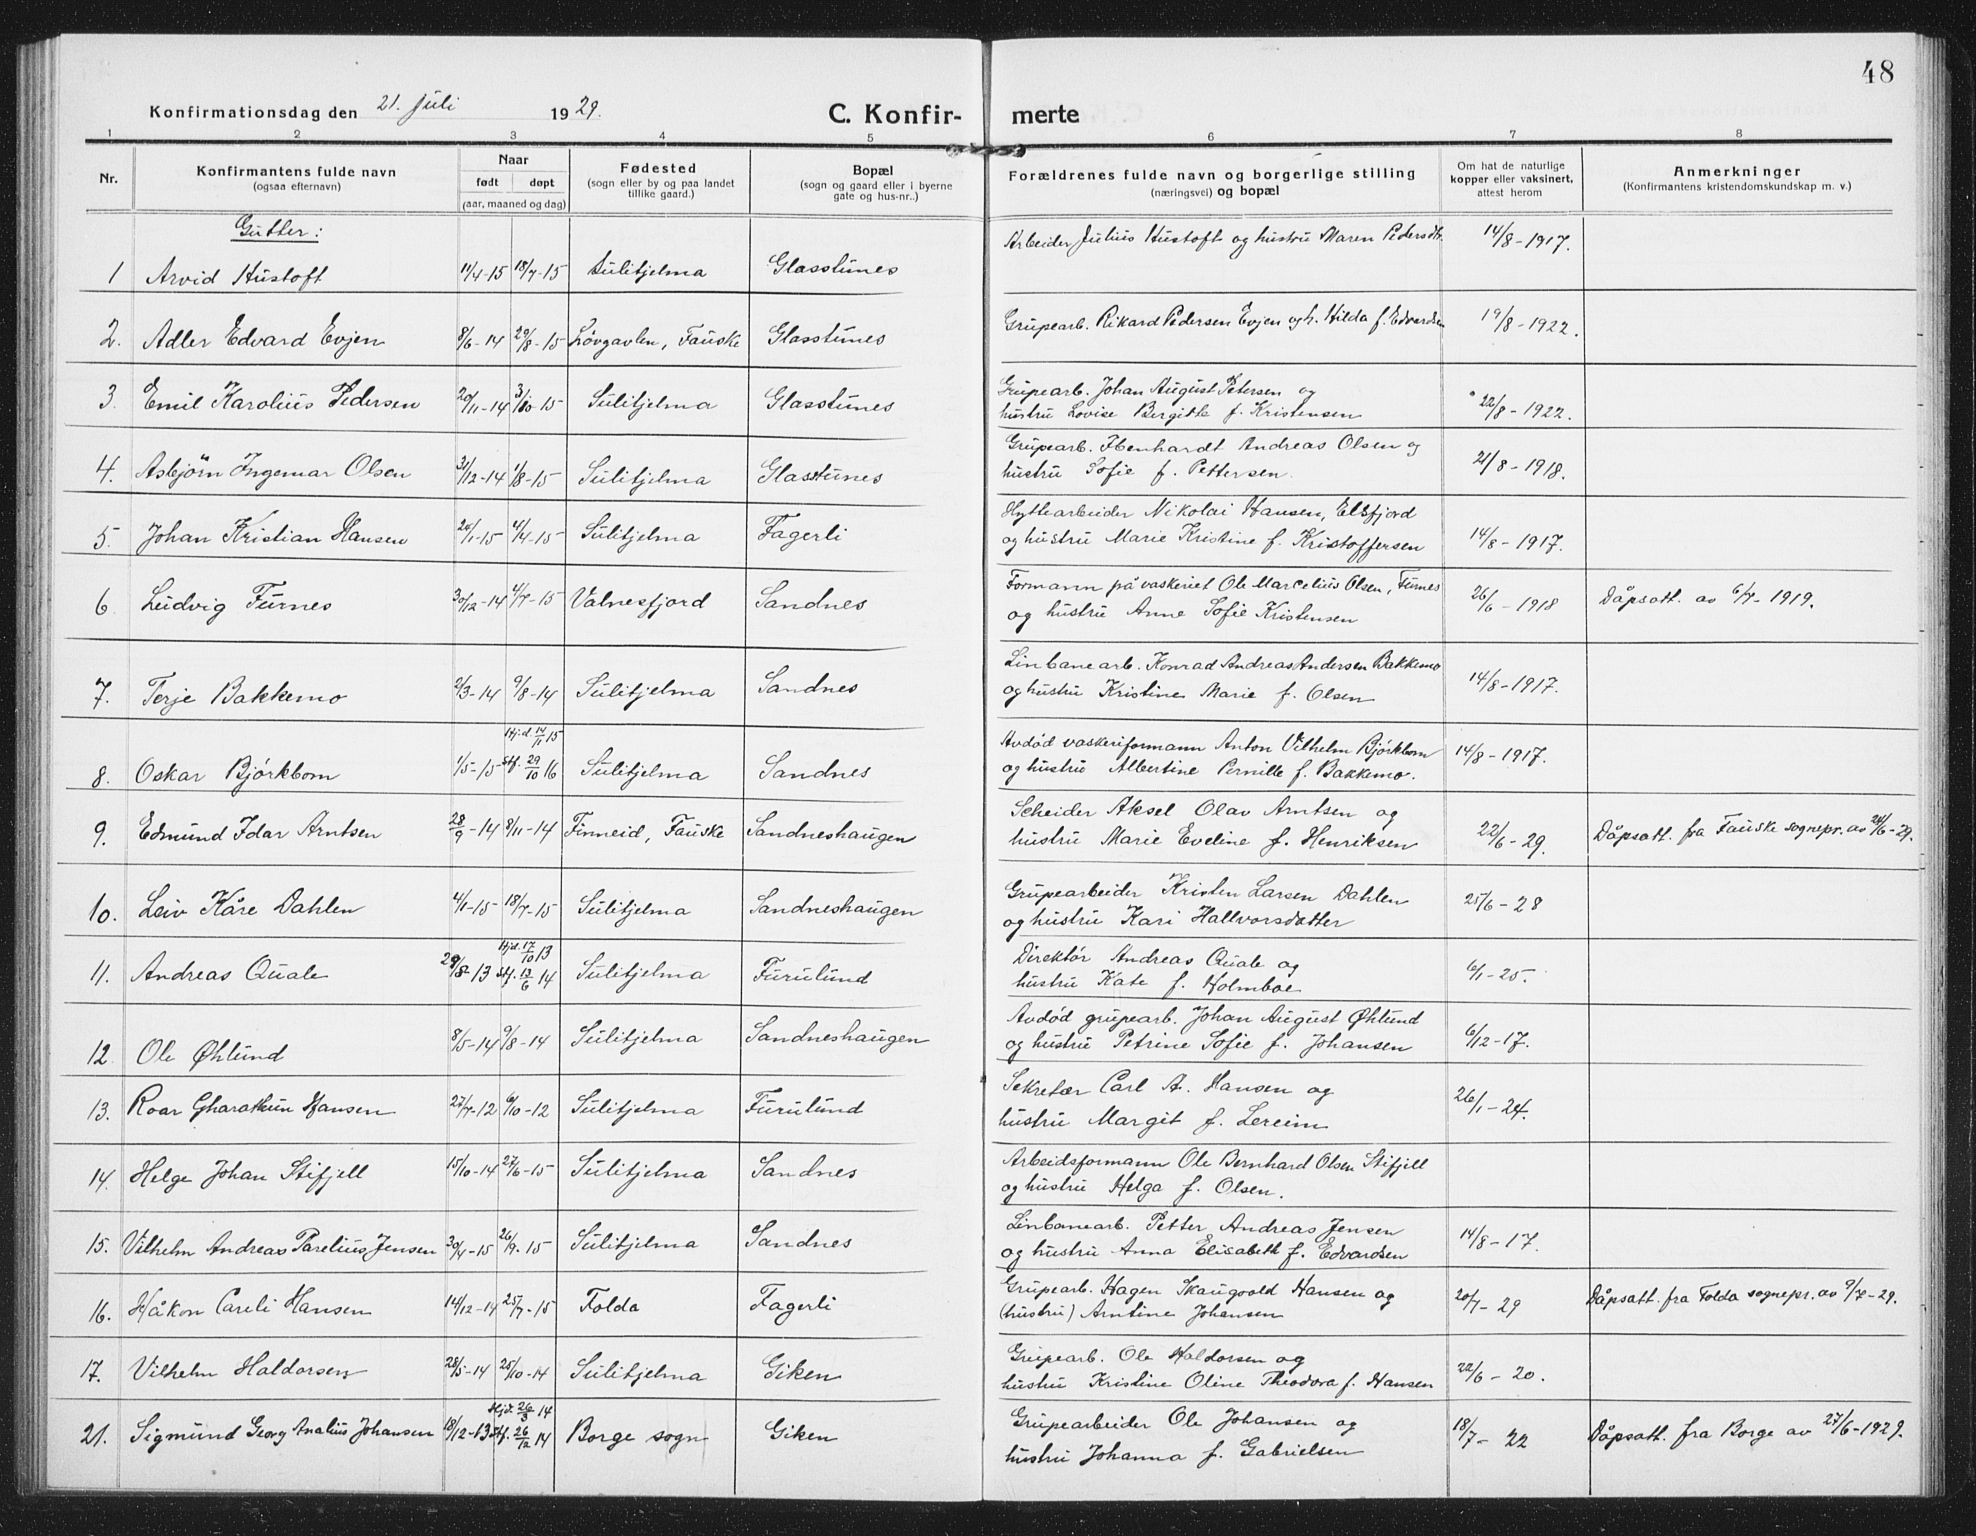 48
Konfirmationsdag den 21. Juli 1929.
C. Konfir- merte
1 2 3 4 5 6 7 8
Nr.
Konfirmantens fulde navn
(ogsaa efternavn)
Naar
født døpt
(aar, maaned og dag)
Fødested
(sogn eller by og paa landet
tillike gaard.)
Bopæl
(sogn og gaard eller i byerne
gate og hus-nr..)
Forældrenes fulde navn og borgerlige stilling
(næringsvei) og bopæl
Om hat de naturlige
kopper eller vaksinert,
attest herom
Anmerkninger
(Konfirmantens kristendomskundskap m. v.)
Gutter:
1 Arvid Hustoft 11/4-15 18/7-15 Sulitjelma Glasstunes Arbeider Julius Hustoft og hustru Maren Pedersdtr. 14/8-1917.
2. Adler Edvard Evjen 8/6-14 29/8-15 Løvgavlen, Fauske Glasstunes Grupearb. Rikard Pedersen Evjen og h. Hilda f. Edvardsen 19/8-1922.
3. Emil Karolius Pedersen 20/11-14 3/10-15 Sulitjelma Glasstunes Grupearb. Johan August Petersen og
hustru Lovise Bergitte f. Kristensen 22/8-1922.
4. Asbjörn Ingemar Olsen 31/12-14 1/8-15 Sulitjelma Glasstunes Grupearb. Ebenhardt Andreas Olsen og
hustru Sofie f. Pettersen. 21/8-1918.
5. Johan Kristian Hansen 20/1-15 4/4-15 Sulitjelma Fagerli Hyttearbeider Nikolai Hansen, Elsfjord
og hustru Marie Kristine f. Kristoffersen 14/8-1917.
6. Ludvig Furnes 30/12-14 4/7-15 Valnesfjord Sandnes Formann på vaskeriet Ole Marcelius Olsen, Furnes
og hustru Anne Sofie Kristensen 26/6-1918 Dåpsatt. av 6/7-1919.
7. Terje Bakkemo 2/3-14 9/8-14 Sulitjelma Sandnes Linbanearb. Konrad Andreas Andersen Bakkemo
og hustru Kristine Marie f. Olsen 14/8-1917.
8. Oskar Bjórkbom 1/5-15 Hj.d. 14/11 15 Stf. 29/10 16 Sulitjelma Sandnes Avdød vaskeriformann Anton Vilhelm Bjórkbom
og hustru Albertine Pernille f. Bakkemo. 14/8-1917.
9. Edmund Idar Arntsen 28/9-14 8/11-14 Finneid, Fauske Sandneshaugen Scheider Aksel Olav Arntsen og
hustru Marie Eveline f. Henriksen 22/6-29. Dåpsatt. fra Fauske sognepr. av 24/6-29.
10. Leiv Kåre Dahlen 4/1-15 18/7-15 Sulitjelma Sandneshaugen Grupearbeider Kristen Larsen Dahlen
og hustru Kari Hallvorsdatter 25/6-28
11. Andreas Quale 29/8-13 Hjd. 17/10 13 Stf. 13/6 14 Sulitjelma Furulund Direktør Andreas Quale og
hustru Kate f. Holmboe 6/1-25.
12. Ole Øhlund 8/5-14 9/8-14 Sulitjelma Sandneshaugen Avdød grupearb. Johan August Øhlund
og hustru Petrine Sofie f. Johansen 6/12-17.
13. Roar Hansen 27/7-12 6/10-12 Sulitjelma Furulund Sekretær Carl A. Hansen og
hustru Margit f. Lereim 26/1-24.
14. Helge Johan Stifjell 15/10-14 27/6-15 Sulitjelma Sandnes Arbeidsformann Ole Bernhard Olsen Stifjell
og hustru Helga f. Olsen.
15. Vilhelm Andreas Parelius Jensen 30/4-15 26/9-15 Sulitjelma Sandnes Linbanearb. Petter Andreas Jensen
og hustru Anna Elisabeth f. Edvardsen 14/8-17.
16. Håkon Careli Hansen 14/12-14 25/7-15 Folda Fagerli Grupearb. Hagen Skaugvold Hansen og
(hustru) Arntine Johansen 20/7-29 Dåpsatt. fra Folda sognepr. av 9/7-29.
17. Vilhelm Haldorsen 28/5-14 25/10-14 Sulitjelma Giken Grupearb. Ole Haldorsen og
hustru Kristine Oline Theodora f. Hansen 22/6-20.
21. Sigmund Georg Analius Johansen 18/12-13 Hjd. 26/3 14 Stf. 26/12 14 Borge sogn Giken Grupearbeider Ole Johansen og
hustru Johanna f. Gabrielsen 18/7-22 Dåpsatt. fra Borge av 27/6-1929.